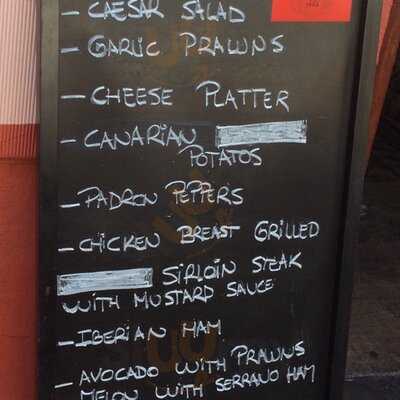 - CAESAR SALAD
- GARLIC PRAWNS
- CHEESE PLATTER
- CANARIAN
POTATOS
- PADRON PEPPERS
- CHICKEN BREAST GRILLED
SIRLOIN STEAK
WITH MUSTARD SAUCE
- IBERIAN HAM
- AVOCADO WITH PRAWNS
MELON WITH SERRANO HAM